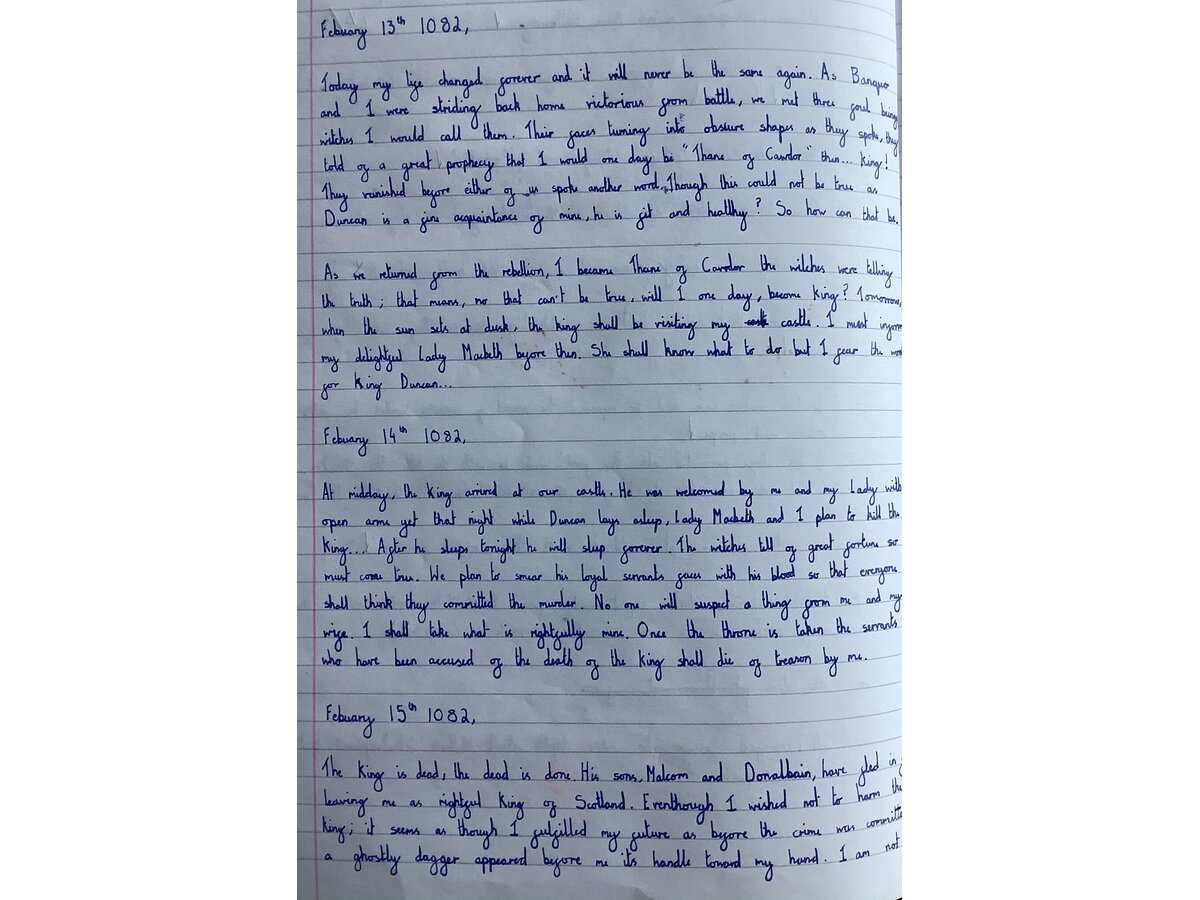 Febuary 13th 1082,
Today my life changed forever and it will never be the same again. As Banquo
and I were striding back home victorious from battle, we met three foul being
witches I would call them. Their faces turning into obscure shapes as they spoke, they
told of a great prophecy that I would one day be "Thane of Cawdor" then... King!
They vanished before either of us spoke another word. Though this could not be true as
Duncan is a fine acquaintance of mine, he is fit and healthy? So how can that be.
As we returned from the rebellion, I became Thane of Cawdor the witches were telling
the truth; that means, no that can't be true, will I one day, become King? Tomorrow,
when the sun sets at dusk, the king shall be visiting my castle. I must inform
my delightful Lady Macbeth before then. She shall know what to do but I fear the
for King Duncan...
Febuary 14th 1082,
At midday, the King arrived at our castle. He was welcomed by me and my Lady with
open arms yet that night while Duncan lays asleep, Lady Macbeth and I plan to kill the
King... After he sleeps tonight he will sleep forever. The witches tell of great fortune so
must come true. We plan to smear his loyal servants faces with his blood so that everyone
shall think they committed the murder. No one will suspect a thing from me and my
wife. I shall take what is rightfully mine. Once the throne is taken the servants
who have been accused of the death of the King shall die of treason by me.
Febuary 15th 1082,
The King is dead, the dead is done. His sons, Malcom and Donalbain, have fled in
leaving me as rightful King of Scotland. Eventhough I wished not to harm the
King; it seems as though I fulfilled my future as before the crime was committe
a ghostly dagger appeared before me its handle toward my hand. I am not